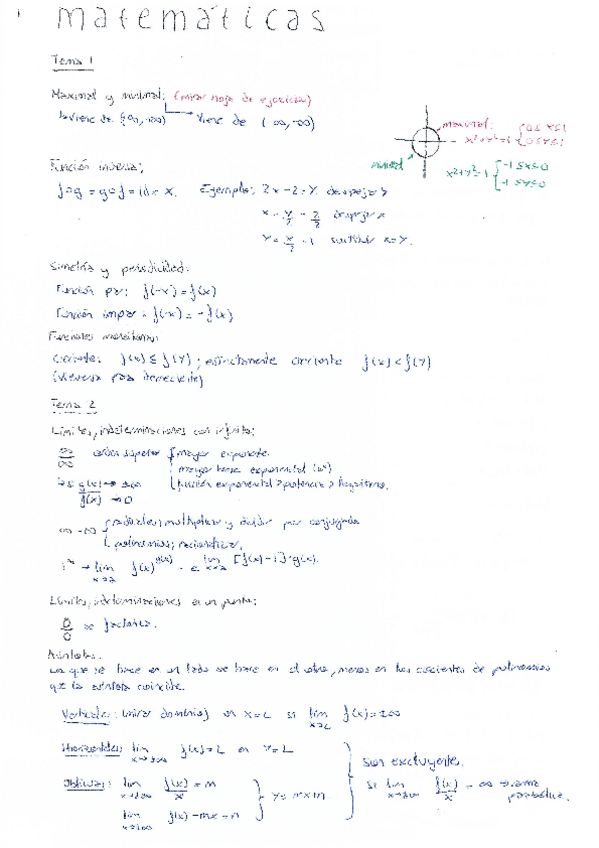 matemáticas
Tema 1
Maximal y minimal: (mirar hoja de ejercicios)
viene de (∞,-∞) viene de (-∞,-∞)
maximal:
x²+y²=1 { 0≤x≤1
0≤y≤1
minimal x²+y²=1 { -1≤x≤0
-1≤y≤0
Función inversa:
f∘g = g∘f = id = x. Ejemplo: 2x-2=y. despejar
x = y/2 - 2/2 despejar x
y = x/2 - 1 sustituir x=y.
Simetría y periodicidad:
Función par: f(-x)=f(x)
Función impar: f(-x)=-f(x)
Funciones monótonas:
Creciente: f(x)≤f(y); estrictamente creciente f(x)<f(y)
(viceversa para decreciente)
Tema 2
Límites, indeterminaciones con infinito:
∞/∞ orden superior { mayor exponente
mayor base exponencial
función exponencial > potencia > logaritmo.
g(x)/f(x)
∞-∞ { radicales: multiplicar y dividir por conjugado
polinomios:
1^∞ → lim x→a f(x)^g(x) = e^lim x→a [f(x)-1]·g(x).
Límites, indeterminaciones en un punto:
0/0 se factoriza.
Asíntotas:
Lo que se hace en un lado se hace en el otro, menos en los cocientes de polinomios
que la asíntota coincide.
Verticales: (mirar dominio) en x=L si lim x→L f(x)=±∞
Horizontales: lim x→±∞ f(x)=L en y=L
Oblicuas: lim x→±∞ f(x)/x = m
lim x→±∞ f(x)-mx=n } y=mx+n.
son excluyentes.
si lim x→±∞ f(x)/x = ∞ → rama
parabólica.